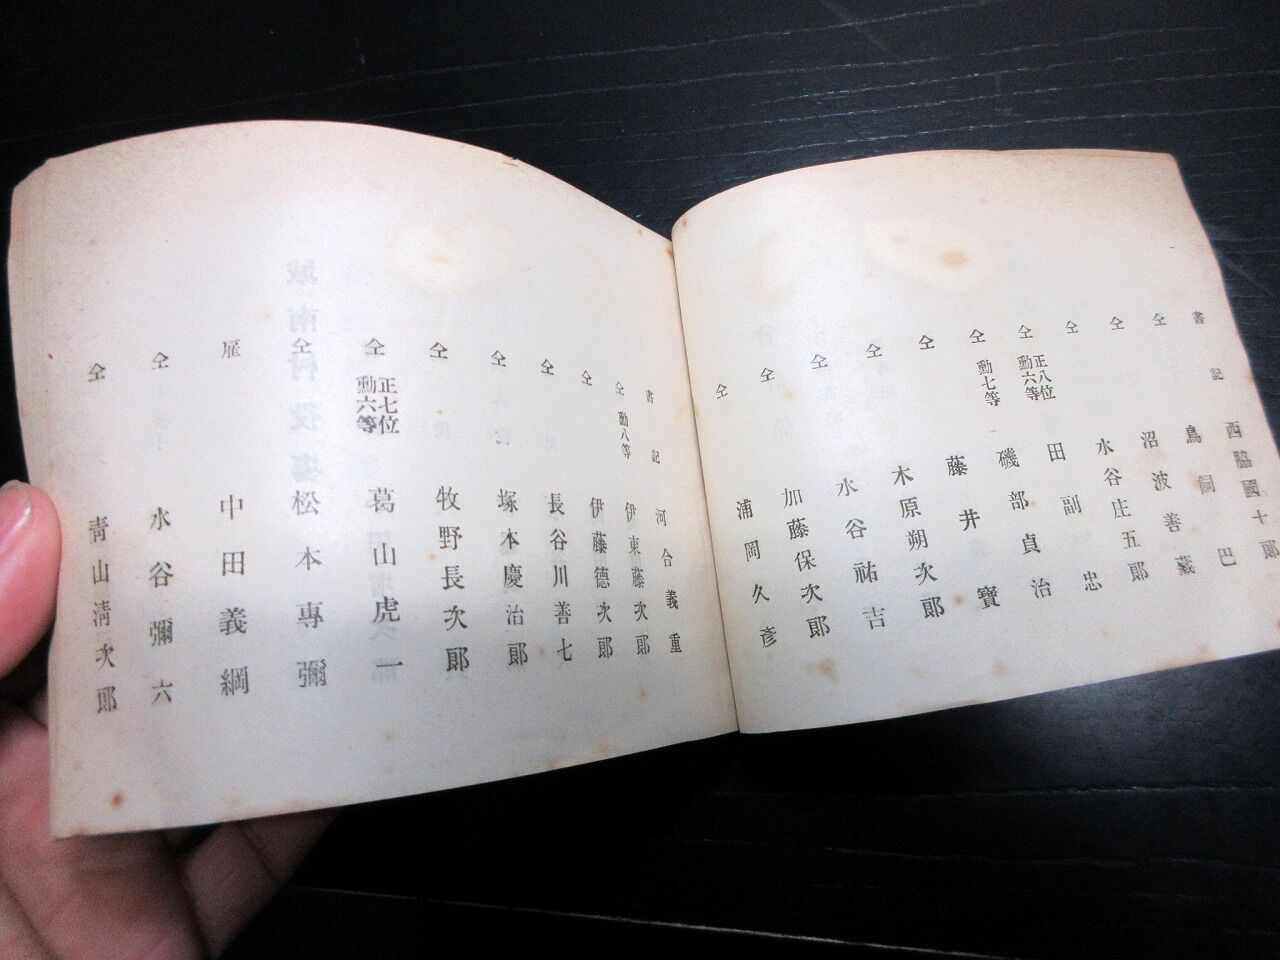 書記 西脇國十郞
仝 鳥飼巴
仝 沼波善藏
仝 水谷庄五郞
仝 正八位勳六等 田副忠
仝 勳七等 磯部貞治
仝 藤井寶
仝 木原朔次郞
仝 水谷祐吉
仝 加藤保次郞
仝 浦岡久彥
書記 河合義重
仝 勳八等 伊東藤次郞
仝 伊藤德次郞
仝 長谷川善七
仝 塚本慶治郞
仝 牧野長次郞
仝 正七位勳六等 葛山虎一
仝 松本專彌
雇 中田義綱
仝 水谷彌六
仝 靑山淸次郞
城南村役塲